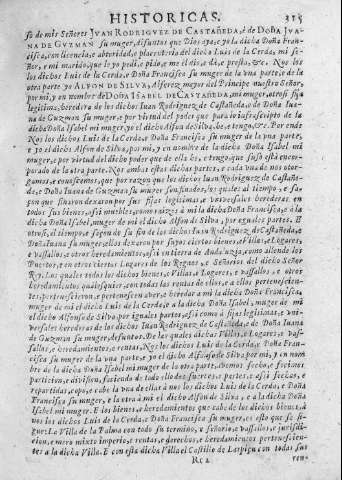 HISTORICAS. 315
so de mis Señores JVAN RODRIGVEZ DE CASTAÑEDA, è de DOÑA JVA-
NA DE GVZMAN su muger, difuntos que Dios aya, e yo la dicha Doña Fran-
cisca, con licencia, e abtoridad, e placenteria del dicho Luis de la Cerda, mi se-
ñor, e mi marido, que le yo pedi, e pido, e me el dio, e dà, e presta, &c. Nos
los dichos Luis de la Cerda, e Doña Francisca su muger de la vna parte, e de la
otra parte yo ALFON DE SILVA, Alferez mayor del Principe nuestro Señor,
por mi, y en nombre de DOÑA ISABEL DE CASTAÑEDA, mi muger, fija
legitima, heredera de los dichos Iuan Rodriguez de Castañeda, e de Doña Iuana
de Guzman su muger, e por virtud del poder que para lo infrascripto de la
dicha Doña Isabel mi muger yo el dicho Alfon de Silva, he, e tengo, &c. Por ende
Nos los dichos Luis de la Cerda, e Doña Francisca su muger de la vna parte,
e yo el dicho Alfon de Silva, por mi, y en nombre de la dicha Doña Isabel mi
muger, e por virtud del dicho poder que de ella he, e tengo, que suso està encor-
porado de la otra parte. Nos ambas estas dichas partes, e cada vna de nos otor-
gamos, e conoscemos, que por razon que los dichos Iuan Rodriguez de Castañe-
da, e Doña Iuana de Guzman su muger son finados, los quales al tiempo, e sa-
çon que finaron dexaron por sus fijas legitimas, e vniversales herederas en
todos sus bienes, assi muebles, como raizes à mi la dicha Doña Francisca, e à la
dicha Doña Isabel, muger de mi el dicho Alfon de Silva, por iguales partes. E
otrosi, el tiempo, e saçon de su fin de los dichos Iuan Rodriguez de Castañeda, e
Doña Iuana su muger, ellos dexaron por suyos ciertos bienes, e Villas, e Logares,
e vassallos, e otros heredamientos, assi en tierra de Andaluzia, como allende los
Puertos, y en otros ciertos Logares de los Regnos, e Señorios del dicho Señor
Rey. Los quales todos los dichos bienes, e Villas, e Logares, e vassallos, e otros
heredamientos qualesquier, con todas las rentas de ellos, e à ellos pertenescien-
tes, pertenescieron, e pertenescen aver, e heredar à mi la dicha Doña Francisca,
muger de mi el dicho Luis de la Cerda, e à la dicha Doña Isabel, muger de mi
el dicho Alfonso de Silva, por iguales partes, assi como à fijas legitimas, e vni-
versales herederas de los dichos Iuan Rodriguez de Castañeda, e de Doña Iuana
de Guzman su muger, defuntos. De los quales dichas Villas, e Logares, e vas-
sallos, e heredamientos, e rentas, Nos los dichos Luis de la Cerda, e Doña Fran-
cisca su muger de la vna parte, e yo el dicho Alfonso de Silva por mi, y en nom-
bre de la dicha Doña Isabel mi muger de la otra parte, avemos fecho, e facimos
particion, e division, faciendo de todo ello partes, assi,
copo, e cabo à la vna de ellas à nos los dichos Luis de la Cerda, e Doña
Francisca su muger, e la otra à mi el dicho Alfon de Silva, e à la dicha Doña
Isabel mi muger. E los bienes, e heredamientos que cabe de los dichos bienes, à
nos los dichos Luis de la Cerda, e Doña Francisca su muger, es esto que se si-
gue: La Villa de Palma con todo su termino, e señorio, e vassallos, e jurisdi-
cion, e mero mixto imperio, e rentas, e derechos, e heredamientos pertenescien-
tes à la dicha Villa. E con esta dicha Villa el Castillo de Carpio con todas sus
Rr 2 ren-